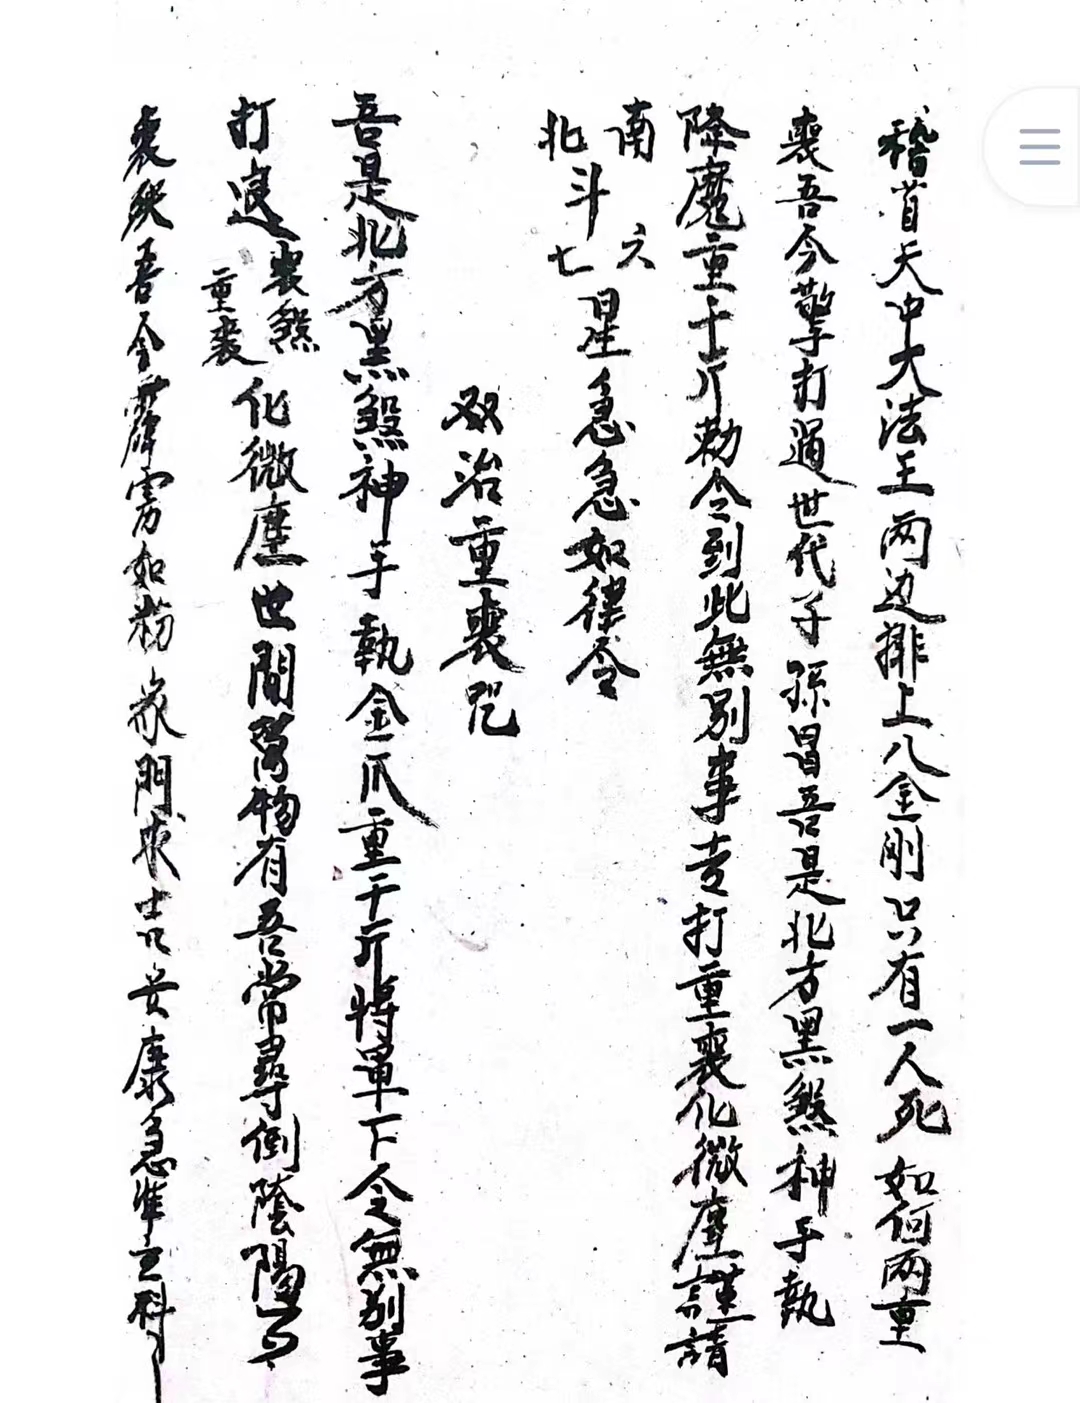 稽首天中大法王两边排上八金刚只有一人死如何两重
喪吾今擎打過世代子孫昌吾是北方黑煞神手執
降魔重千斤勅令到此無别事专打重喪化微塵謹請
南六
北斗七星急急如律令
双治重喪咒
吾是北方黑煞神手執金爪重千斤將軍下令無别事
打退喪煞重喪化微塵世間萬物有吾常尋倒陰陽
喪煞吾今霹雳如粉家門求吉安康急准立科